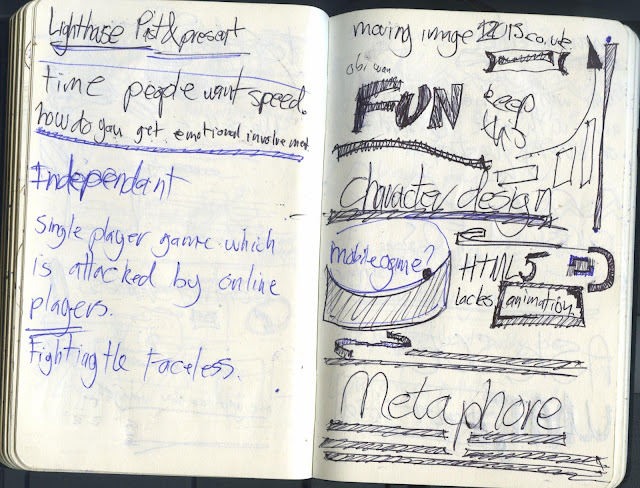 Lighthouse Past & present
time people want speed.
how do you get emotional involvement
Independant
Single player game which
is attacked by online
players.
Fighting the Faceless.
moving image 2013.co.uk
obi wan
FUN
keep
this
Character design
mobile game?
HTML5
lacks animation
Metaphore